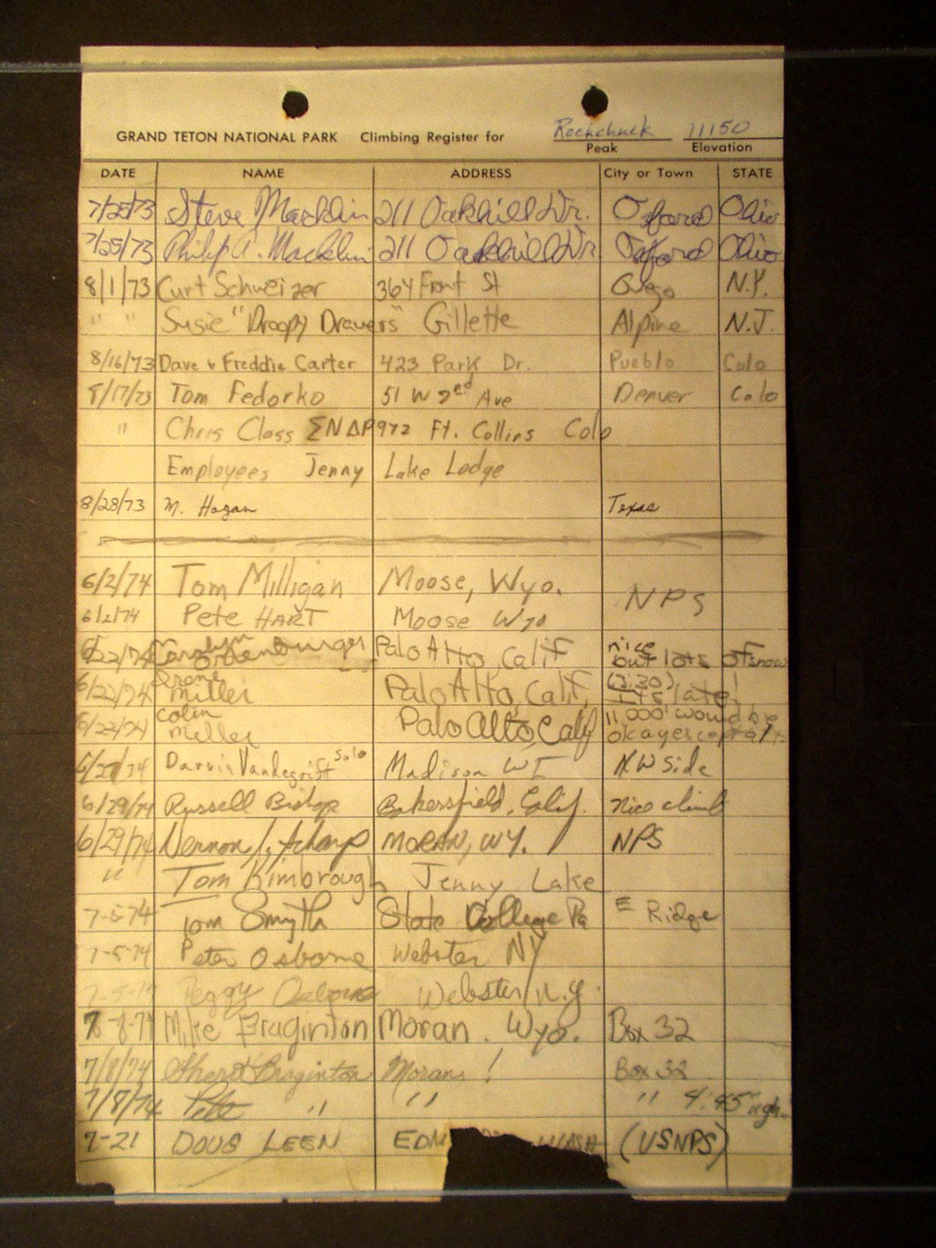 Rockchuck 11150
GRAND TETON NATIONAL PARK Climbing Register for Peak Elevation
DATE NAME ADDRESS City or Town STATE
7/25/73 Steve Macklin 211 Oakhill Dr. Oxford Ohio
7/25/73 Philip A. Macklin 211 Oakhill Dr Oxford Ohio
8/1/73 Curt Schweizer 364 Front St Owego N.Y.
" " Susie "Droopy Drawers" Gillette Alpine N.J.
8/16/73 Dave & Freddie Carter 423 Park Dr. Pueblo Colo
8/17/73 Tom Fedorko 51 W 2ed Ave Denver Colo
" Chris Class ΣN ΔP 972 Ft. Collins Colo
Employees Jenny Lake Lodge
8/28/73 M. Hogan Texas
6/2/74 Tom Milligan Moose, Wyo. NPS
6/2/74 Pete HART Moose Wyo
6/22/74 Carolyn Ortenburger Palo Alto, Calif nice but lots of snow
6/22/74 Irene Miller Palo Alto, Calif, (2:30) It's late!
6/22/74 Colin Miller Palo Alto, Calif 11,000' would be
6/27/74 Darwin Vandegrift solo Madison WI NW Side
6/29/74 Russell Bishop Bakersfield, Calif. Nice climb
6/29/74 Vernon J. MORAN, WY. NPS
" Tom Kimbrough Jenny Lake
7-5-74 Tom Smyth State College Pa E Ridge
7-5-74 Peter Osborne Webster NY
7-5-74 Peggy Osborne Webster, N.Y.
7-8-74 Mike Braginton Moran. Wyo. Box 32
7/8/74 Braginton Moran! Box 32
7/8/74 Pete " " " 4:45 agh.
7-21 DOUG LEEN EDM WASH (USNPS)